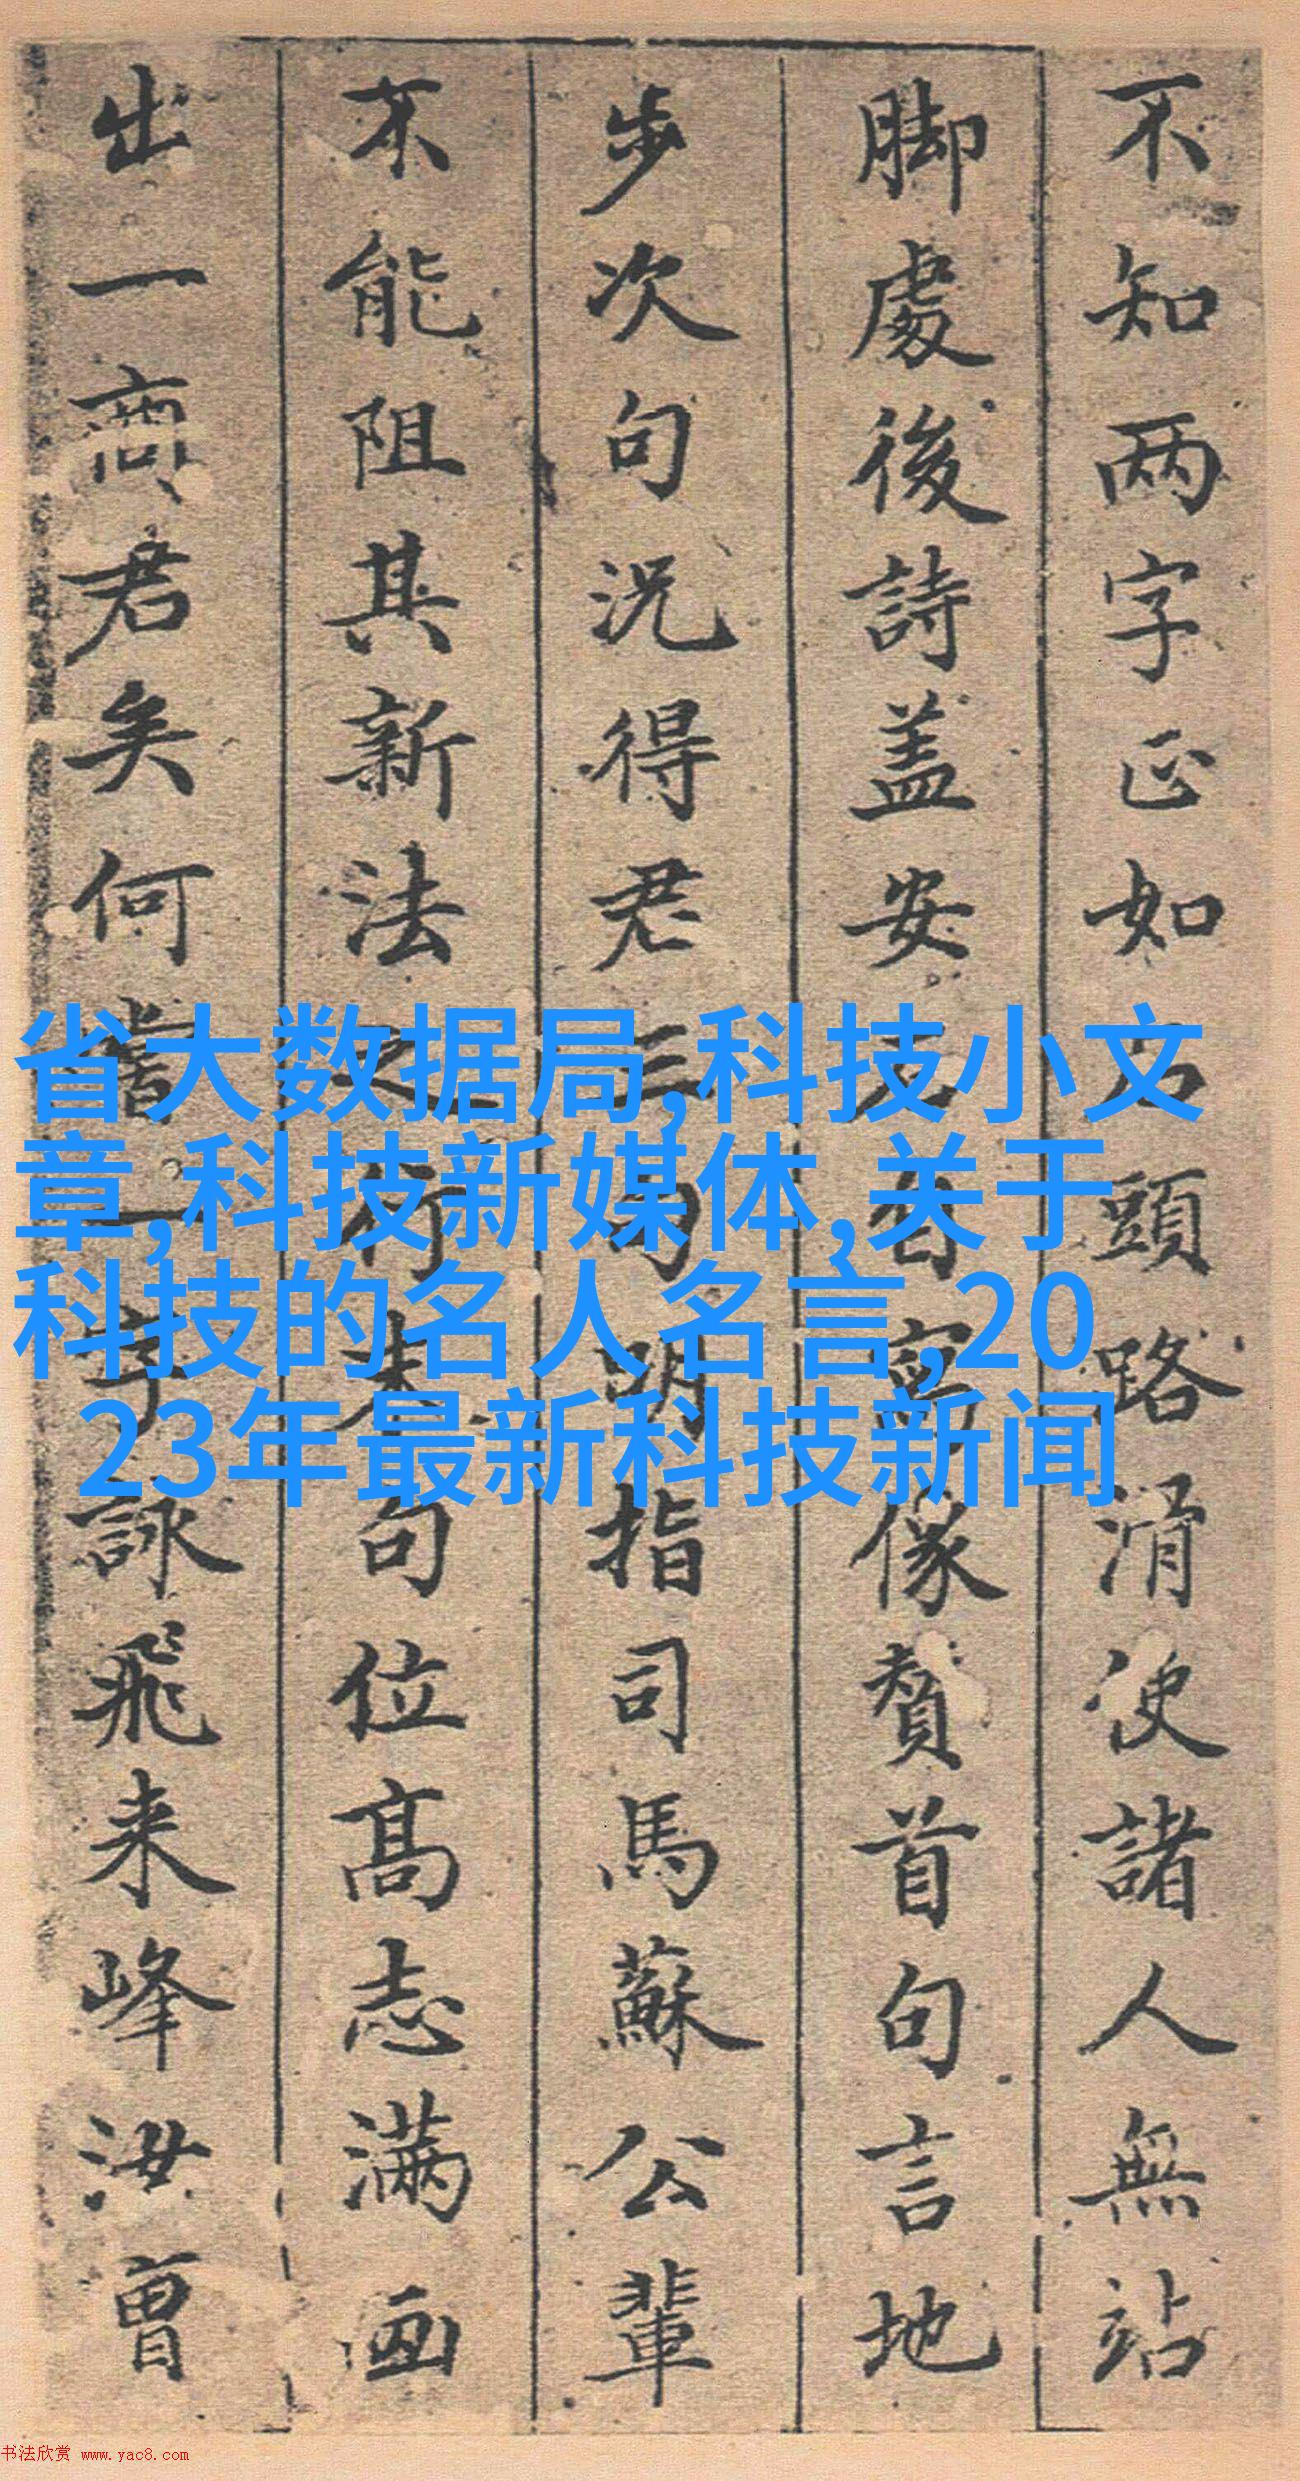 不知两字正如石頭路滑使諸人無站
脚處後詩盖安石自寫像贊首句言地
步次句况得君三句明指司馬蘇公輩
不能阻其新法之行末句位高志满画
出一商君矣何嘗一字詠飛来峰汝曾
省大数据局,科技小文
章,科技新媒体,关于
科技的名人名言,20
23年最新科技新闻
书法欣赏 www.yac8.com